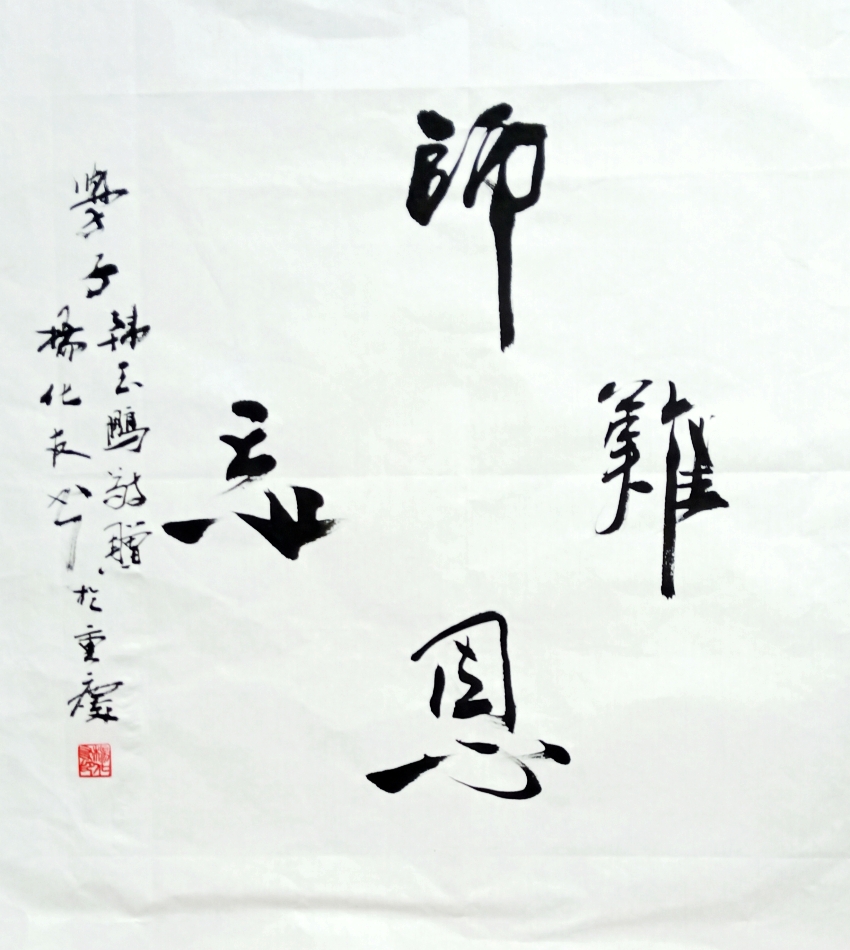 師
恩
難
忘
學子
韩玉鵬敬贈
楊化友书
於重慶